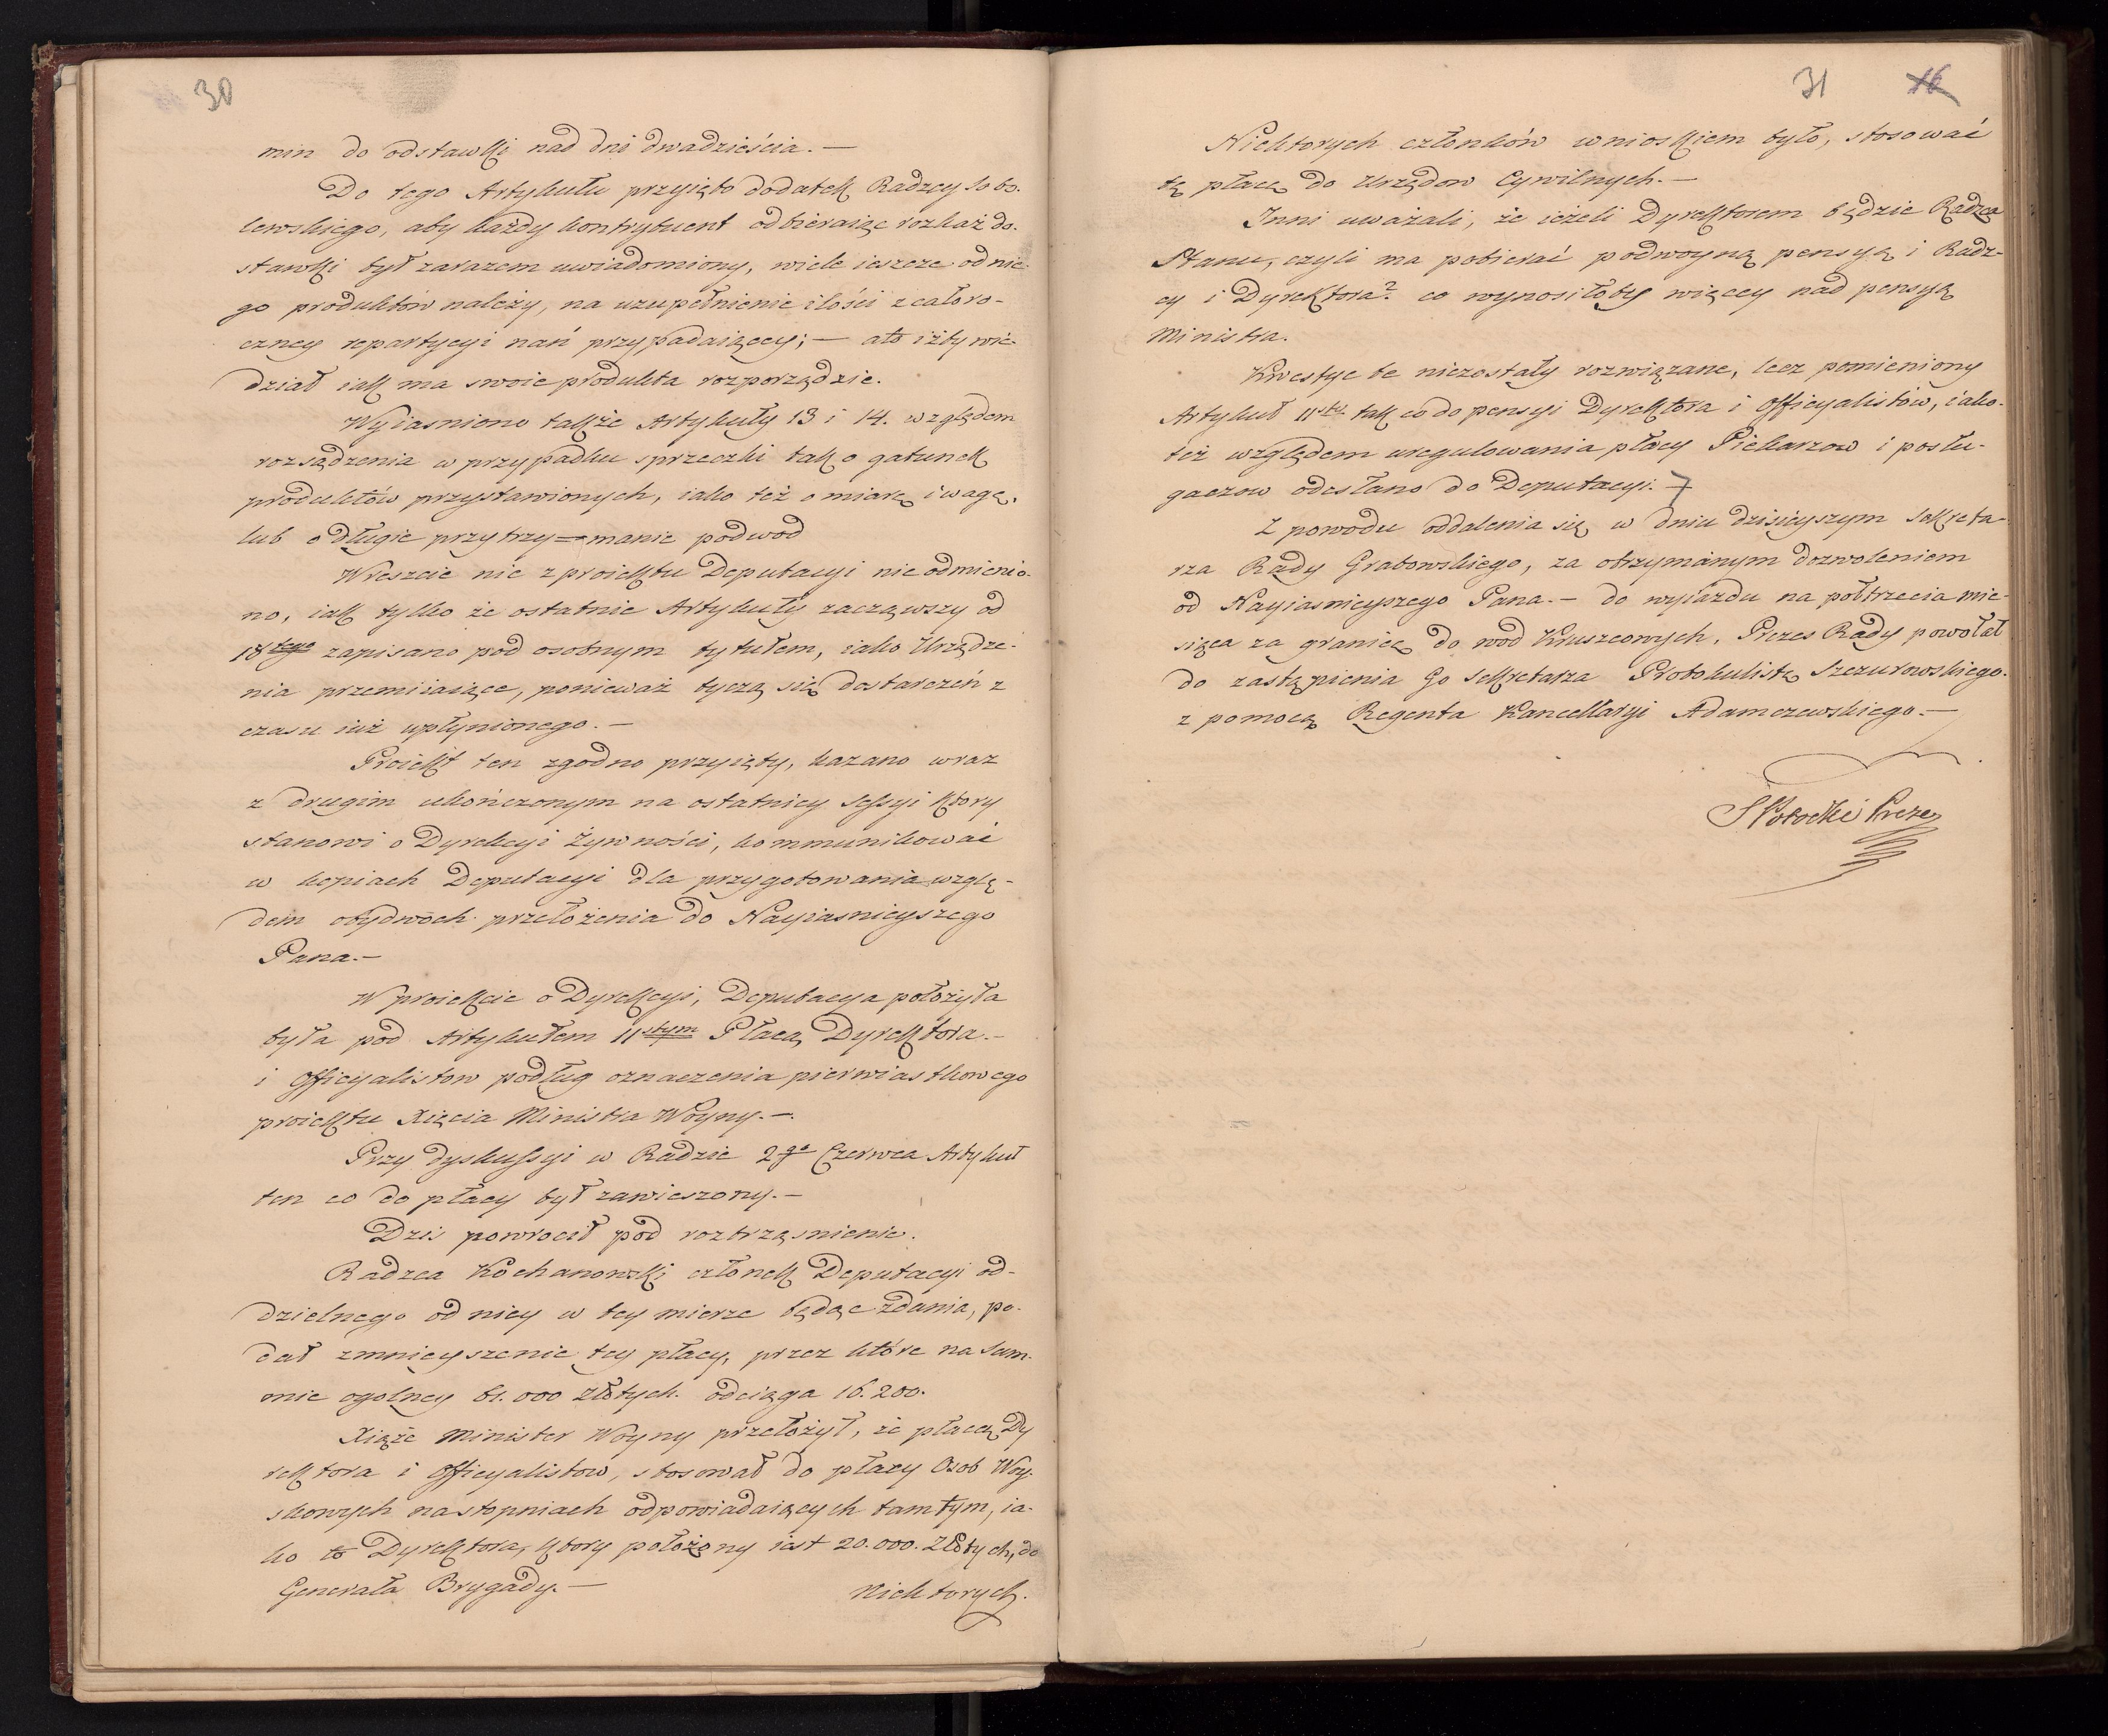 30
min do odstawki nad dni dwadzieścia. —
Do tego Artykułu przyięto dodatek Radzcy Sobo-
lewskiego, aby każdy kontrybuent odbieraiąc rozkaz do-
stawki był zarazem uwiadomiony, wiele ieszcze od nie-
go produktów należy, na uzupełnienie ilości z cało ro-
czney repartycyi nań przypadaiącey; — a to iżby wie-
dział iak ma swoie produkta rozporządzić.
Wyiasniono także Artykuły 13 i 14. względem
rozsądzenia w przypadku sprzeczki tak o gatunek
produktów przystawionych, iako też o miarę i wagę,
lub o długie przytrzy=manie podwod
Wreszcie nic z proiektu Deputacyi nie odmienio-
no, iak tylko że ostatnie Artykuły zacząwszy od
18tego zapisano pod osobnym tytułem, iako Urządze-
nia przemiiaiące, ponieważ tyczą się dostarczeń z
czasu iuż upłynionego. —
Proiekt ten zgodno przyięty, kazano wraz
z drugim ukończonym na ostatniey Sessyi ktory
stanowi o Dyrekcyi Żywności, kommunikować
w kopiach Deputacyi dla przygotowania wzglę-
dem obydwoch przełożenia do Nayiasnieyszego
Pana. —
W proiekcie o Dyrekcyi, Deputacya położyła
była pod Artykułem 11stym Płacę Dyrektora. —
i Officyalistow podług oznaczenia pierwiastkowego
proiektu Xięcia Ministra Woyny. —
Przy dyskussyi w Radzie 2go Czerwca Artykuł
ten co do płacy był zawieszony. —
Dzis powrocił pod roztrząsnienie.
Radzca Kochanowski członek Deputacyi od-
dzielnego od niey w tey mierze będąc zdania, po-
dał zmnieyszenie tey płacy, przez które na Sum-
mie ogolney 61.000 złotych odciąga 16.200.
Xiąże Minister Woyny przełożył, że płacę Dy
rektora i Officyalistow, stosował do płacy Osob Woy-
skowych na stopniach odpowiadaiących tamtym, ia-
ko to Dyrektora, ktory położony iest 20.000. Złotych, do
Generała Brygady. —
Niektorych.
31 16
Niektorych członków wnioskiem było, stosować
tę płacę do Urzędow Cywilnych. —
Inni uważali, że ieżeli Dyrektorem będzie Radzca
Stanu, czyli ma pobierać podwoyną pensyą i Radz-
cy i Dyrektora? co wynosiłoby więcey nad pensyą
Ministra.
Kwestye te niezostały rozwiązane, lecz pomieniony
Artykuł 11sty tak co do pensyi Dyrektora i Officyalistów, iako-
też względem uregulowania płacy Piekarzow i posłu-
gaczow odesłano do Deputacyi. —
Z powodu oddalenia się w dniu dzisieyszym Sekreta-
rza Rady Grabowskiego, za otrzymanym dozwoleniem
od Nayiasnieyszego Pana. — do wyiazdu na półtrzecia mie-
siąca za granicę do wod Kruszcowych, Prezes Rady powołał
do zastąpienia Go Sekretarza Protokulistę Szczurowskiego.
z pomocą Regenta Kancellaryi Adamczewskiego. —
S Potocki Prezes